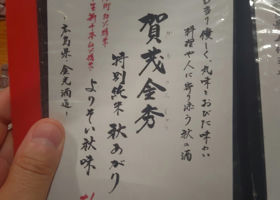 口当り優しく、丸味をおびた味わい
料理や人に寄り添う秋の酒
賀茂金秀
特別純米 秋あがり
よりそい秋味
～広島県・金光酒造～